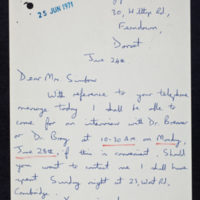 25 JUN 1971
30, Hilltop Rd,
Ferndown,
Dorset
June 24th.
Dear Mrs.
With reference to your telephone
message today I shall be able to
come for an interview with Dr. Brenner
or Dr. Bray at 10.30 A.M. on Monday,
June 28th, if this is convenient. Should
you want to contact me I shall have
spent Sunday night at 23, West Rd,
Cambridge.